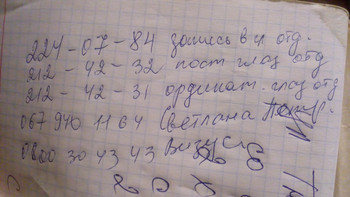 224-07-84 запись в гл. отд.
212-42-32 пост глаз отд
212-42-31 ординат. глаз отд
067 940 11 64 Светлана
0800 30 43 43 Визус